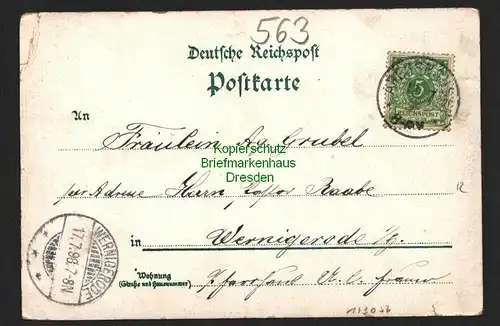 563
Deutsche Reichspost
Postkarte
5
REICHSPOST
An
Fräulein Grubel
Kopierschutz
Briefmarkenhaus
Dresden
per Adresse Herrn Pastor Raabe
in Wernigerode
WERNIGERODE
17.7.98.7-8N
Wohnung
(Straße und Hausnummer)
Pfarrhaus
113056